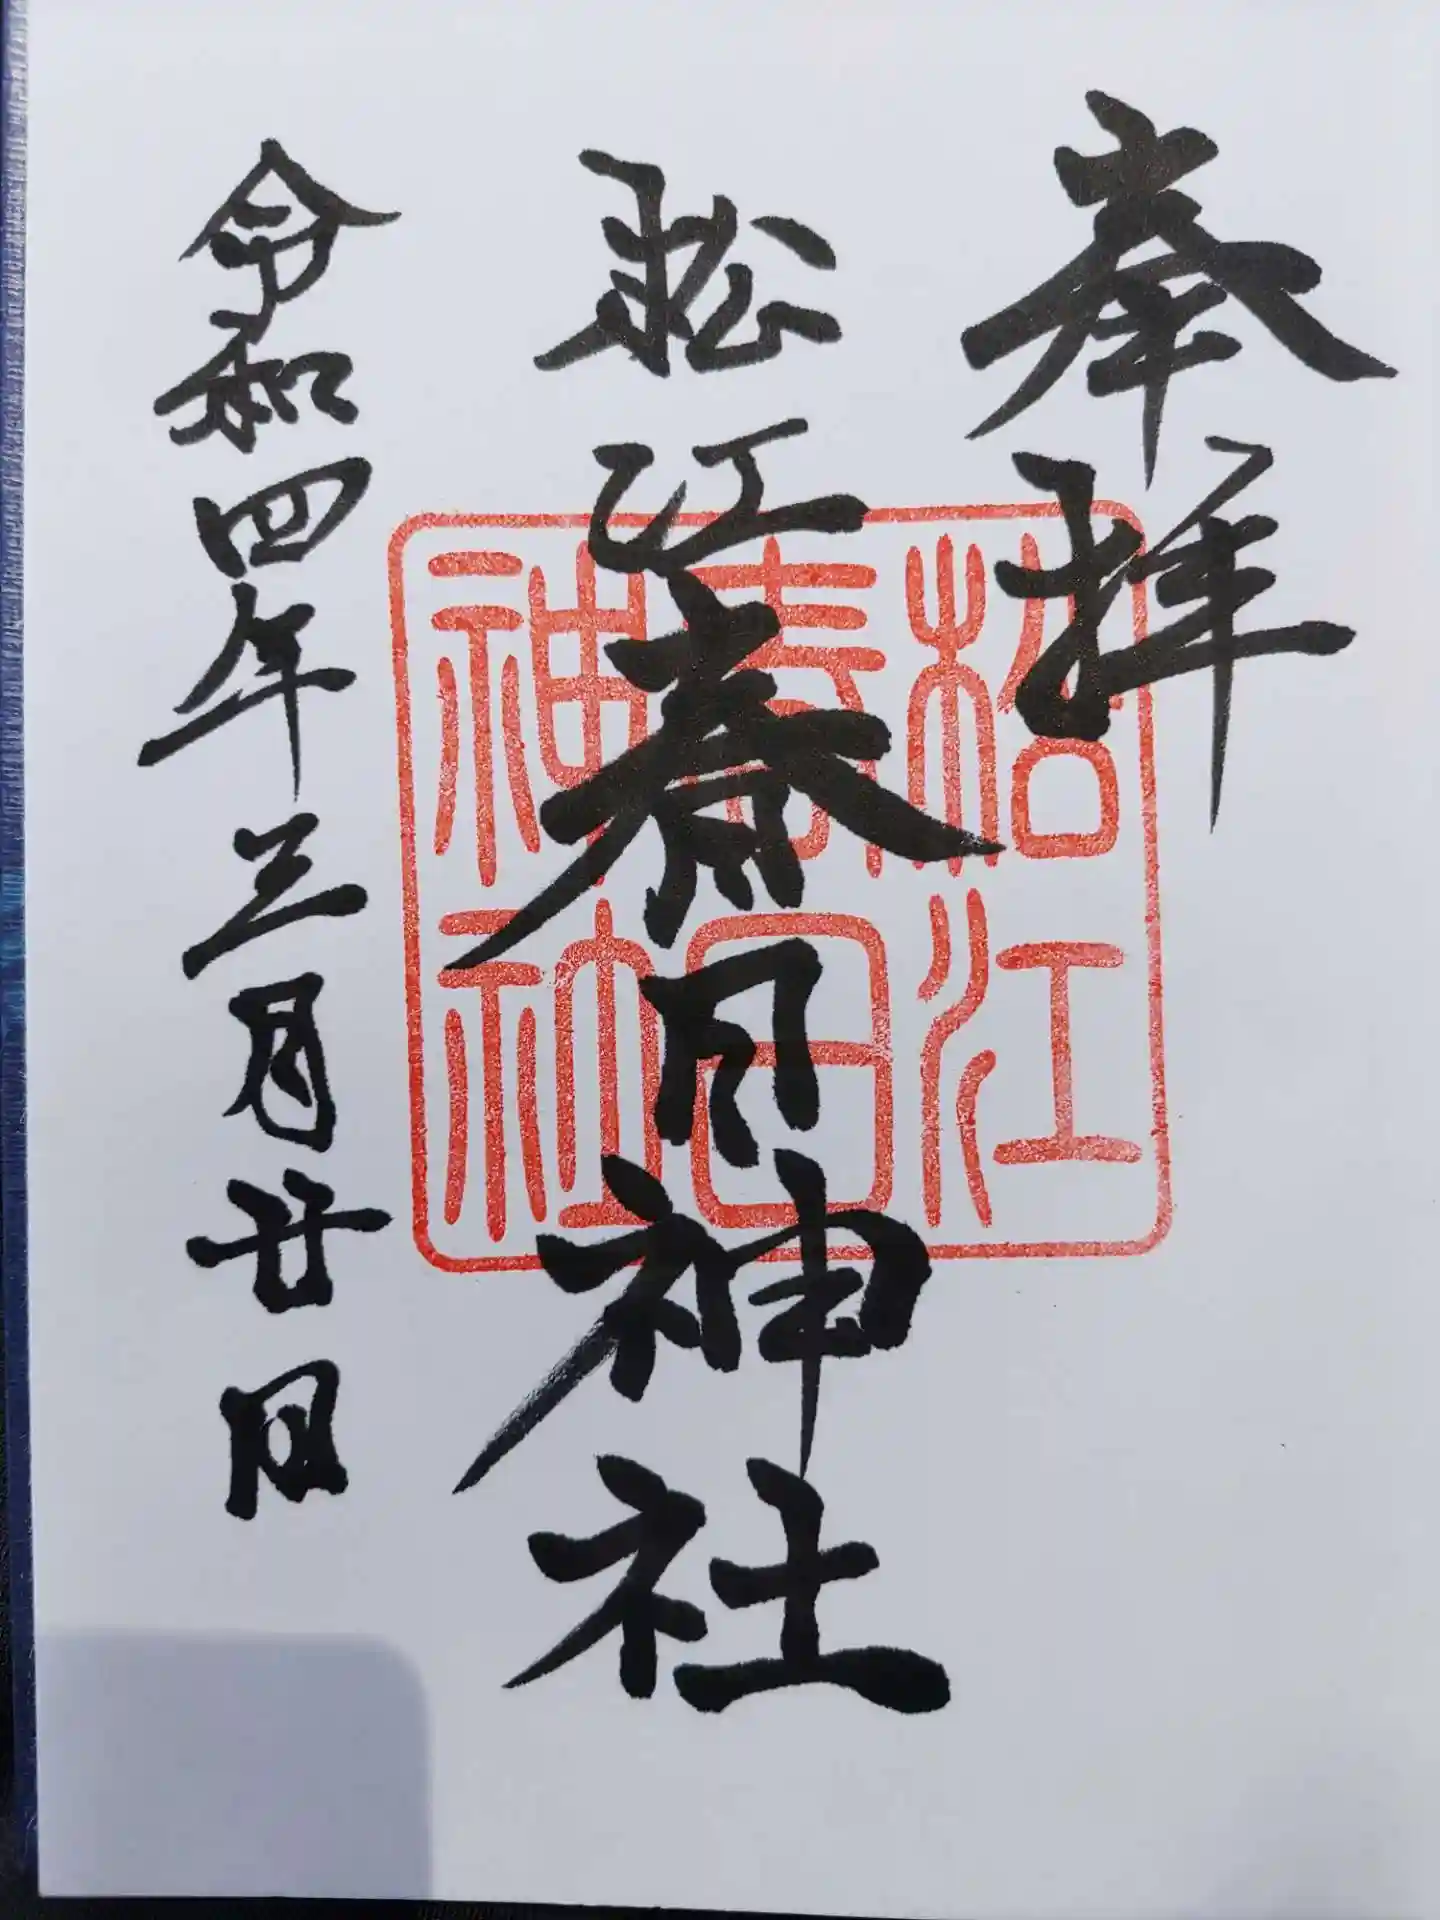 奉拝
松江春日神社
令和四年三月廿日
松江
春日
神社